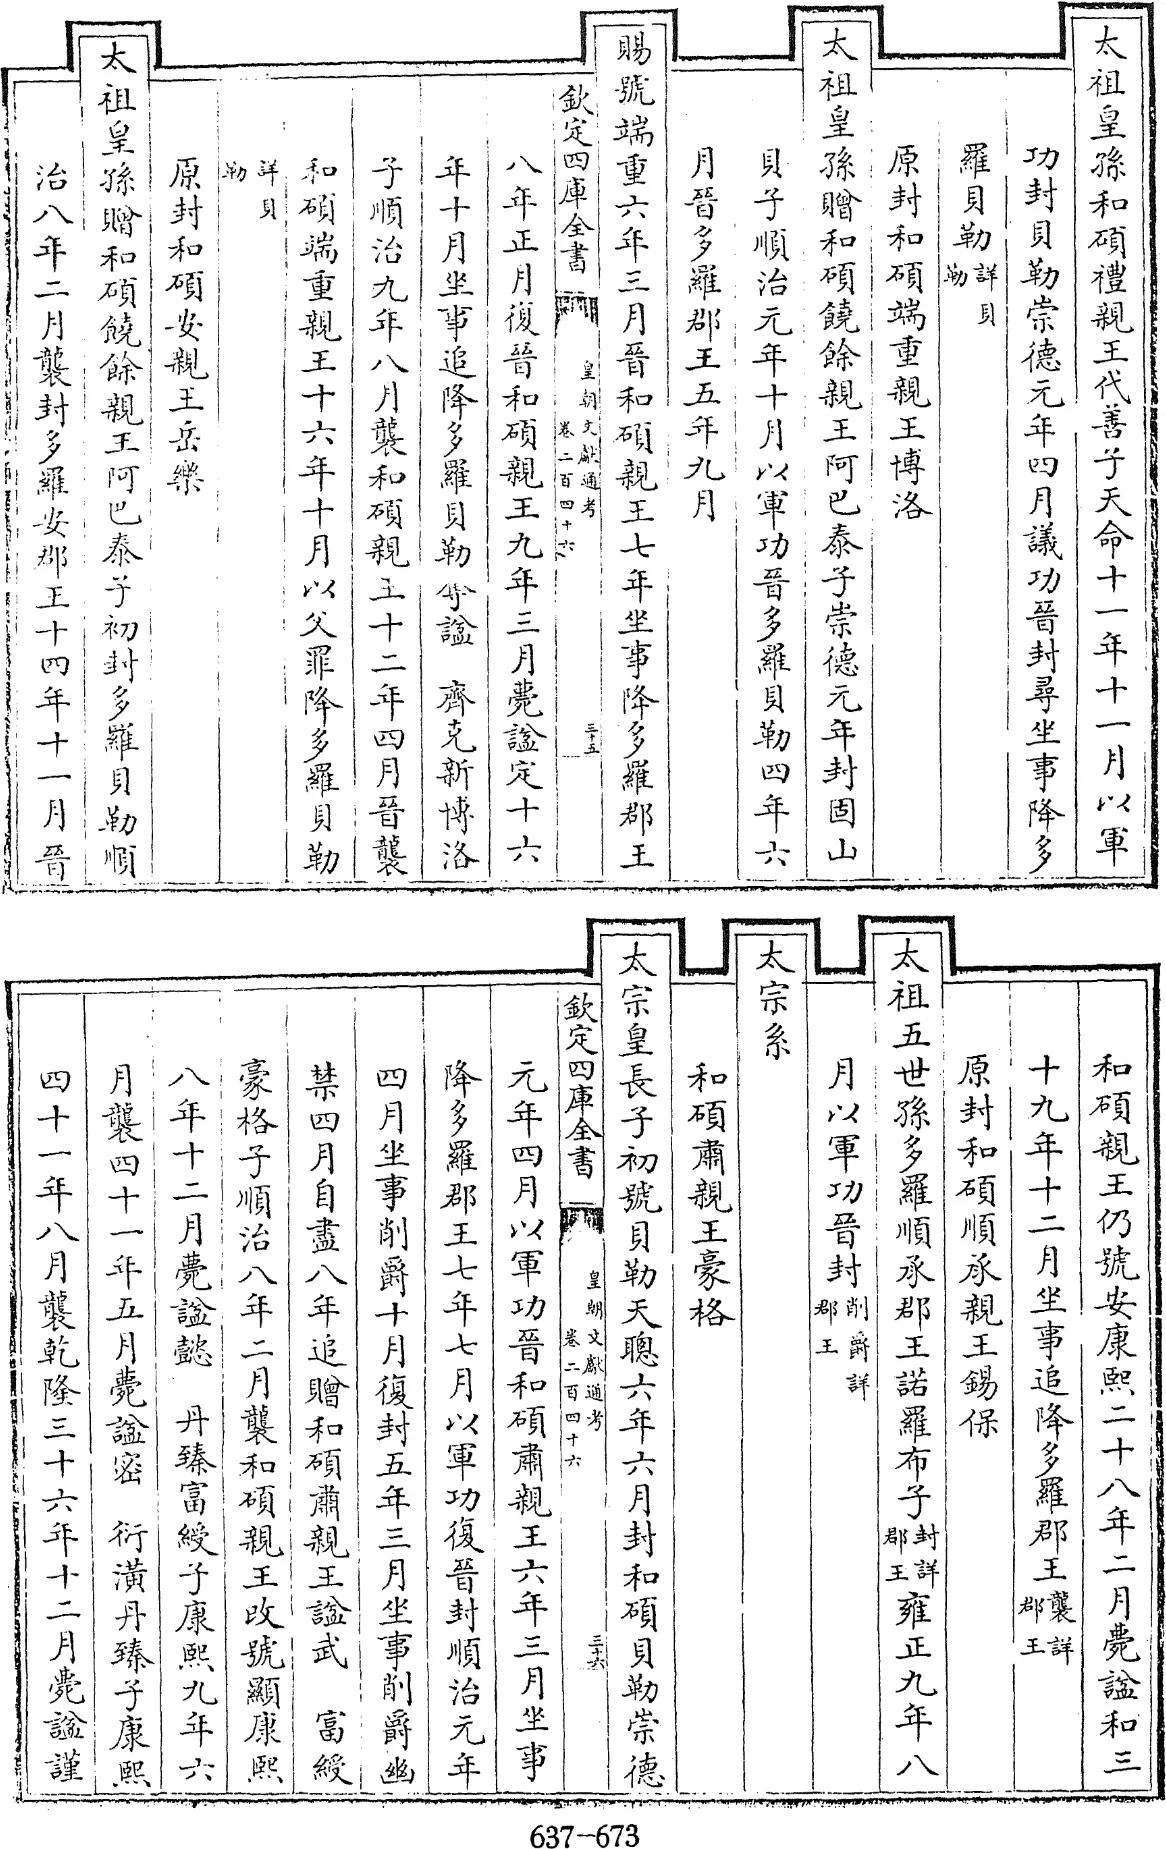 太祖皇孫和碩禮親王代善子天命十一年十一月以軍
功封貝勒崇德元年四月議功晉封尋坐事降多
羅貝勒詳貝勒
原封和碩端重親王博洛
太祖皇孫贈和碩饒餘親王阿巴泰子崇德元年封固山
貝子順治元年十月以軍功晉多羅貝勒四年六
月晉多羅郡王五年九月
賜號端重六年三月晉和碩親王七年坐事降多羅郡王
欽定四庫全書
皇朝文獻通考
卷二百四十六
三十五
八年正月復晉和碩親王九年三月薨諡定十六
年十月坐事追降多羅貝勒奪諡 齊克新博洛
子順治九年八月襲和碩親王十二年四月晉襲
和碩端重親王十六年十月以父罪降多羅貝勒
詳貝勒
原封和碩安親王岳樂
太祖皇孫贈和碩饒餘親王阿巴泰子初封多羅貝勒順
治八年二月襲封多羅安郡王十四年十一月晉
和碩親王仍號安康熙二十八年二月薨諡和三
十九年十二月坐事追降多羅郡王襲詳郡王
原封和碩順承親王錫保
太祖五世孫多羅順承郡王諾羅布子封詳郡王雍正九年八
月以軍功晉封削爵詳郡王
太宗系
和碩肅親王豪格
太宗皇長子初號貝勒天聰六年六月封和碩貝勒崇德
欽定四庫全書
皇朝文獻通考
卷二百四十六
三十六
元年四月以軍功晉和碩肅親王六年三月坐事
降多羅郡王七年七月以軍功復晉封順治元年
四月坐事削爵十月復封五年三月坐事削爵幽
禁四月自盡八年追贈和碩肅親王諡武 富綬
豪格子順治八年二月襲和碩親王改號顯康熙
八年十二月薨諡懿 丹臻富綬子康熙九年六
月襲四十一年五月薨諡密 衍潢丹臻子康熙
四十一年八月襲乾隆三十六年十二月薨諡謹
637-673